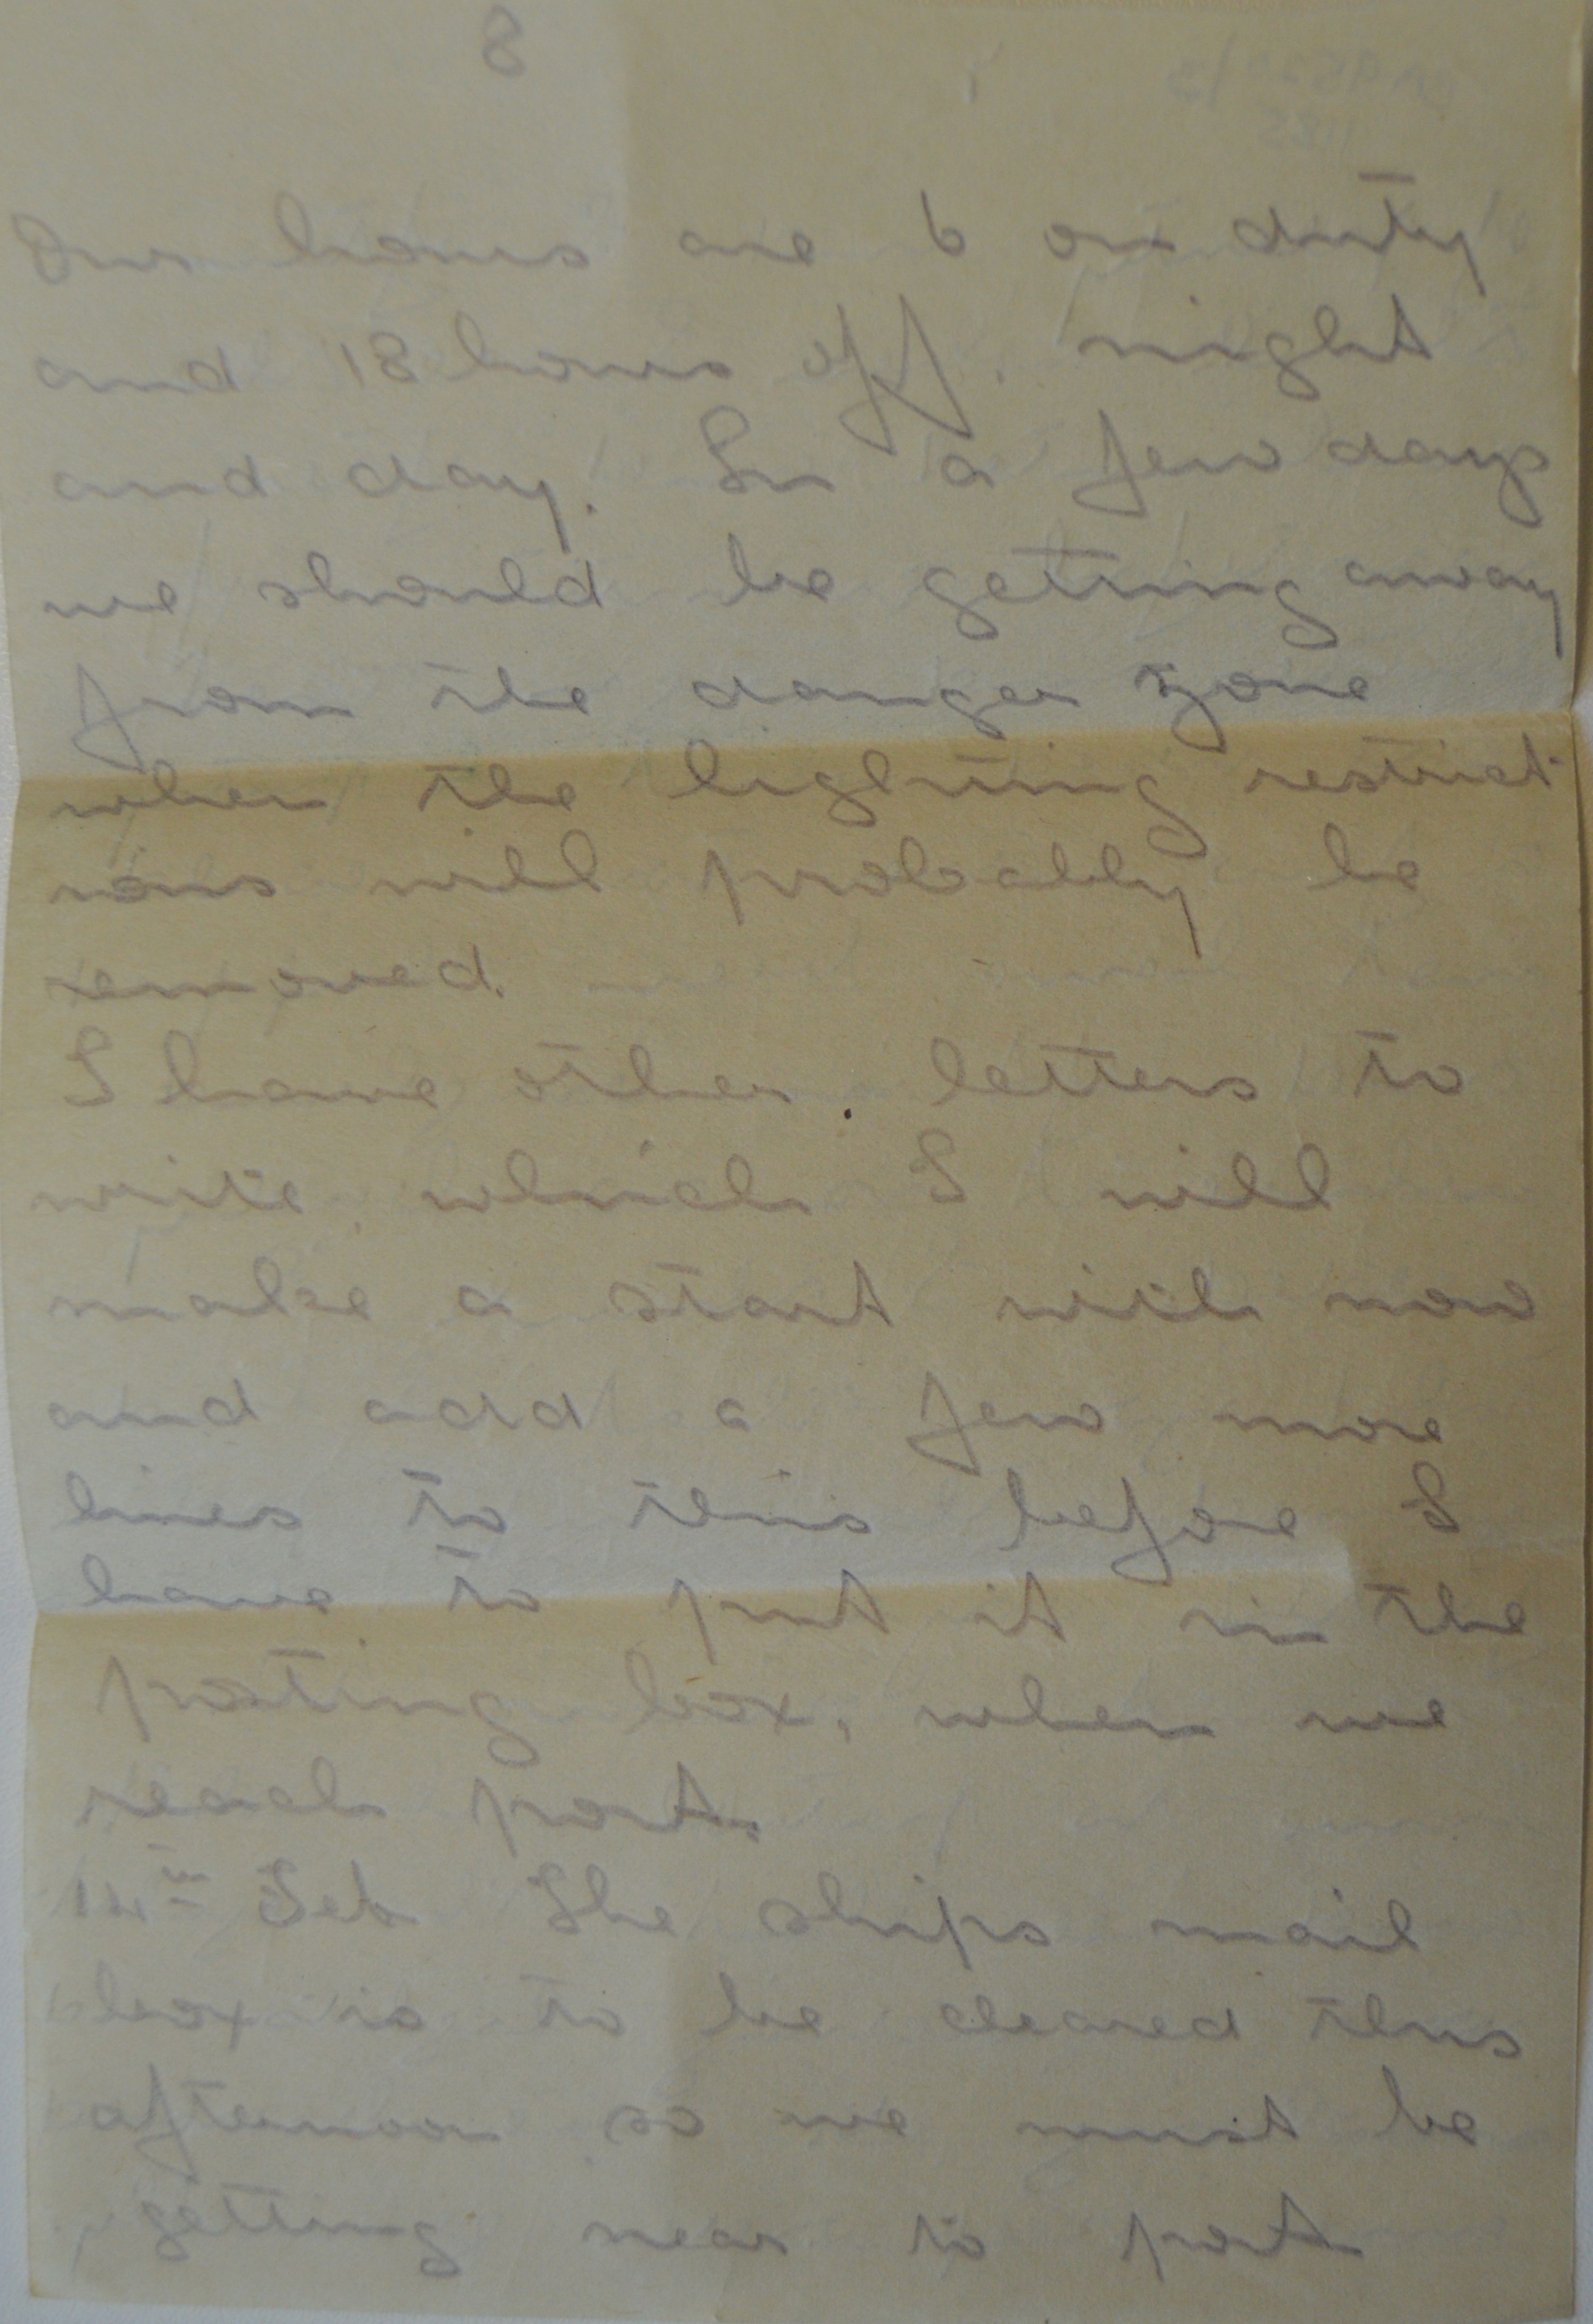 8
Our hours are 6 on duty
and 18 hours off. night
and day. In a few days
we should be getting away
from the danger zone
when the lighting restrict-
ions will probably be
removed.
I have other letters to
write which I will
make a start with now
and add a few more
lines to this before I
have to put it in the
posting box, when we
reach port.
14th Feb The ships mail
box is to be cleared this
afternoon so we must be
getting near to port